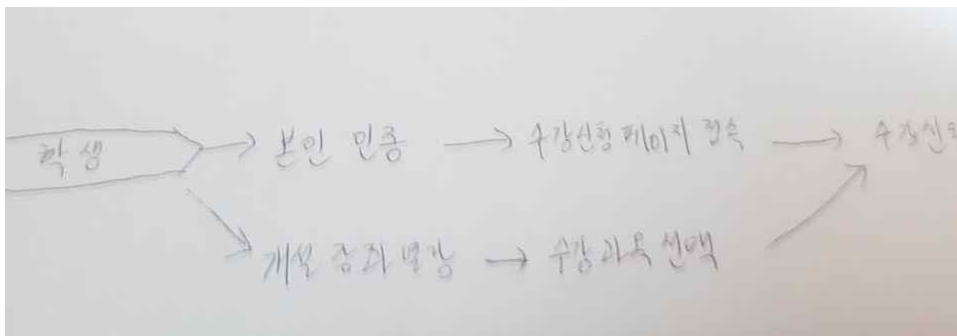 학생
본인 인증
수강신청 페이지 접속
수강신
개설 강좌 열람
수강과목 선택